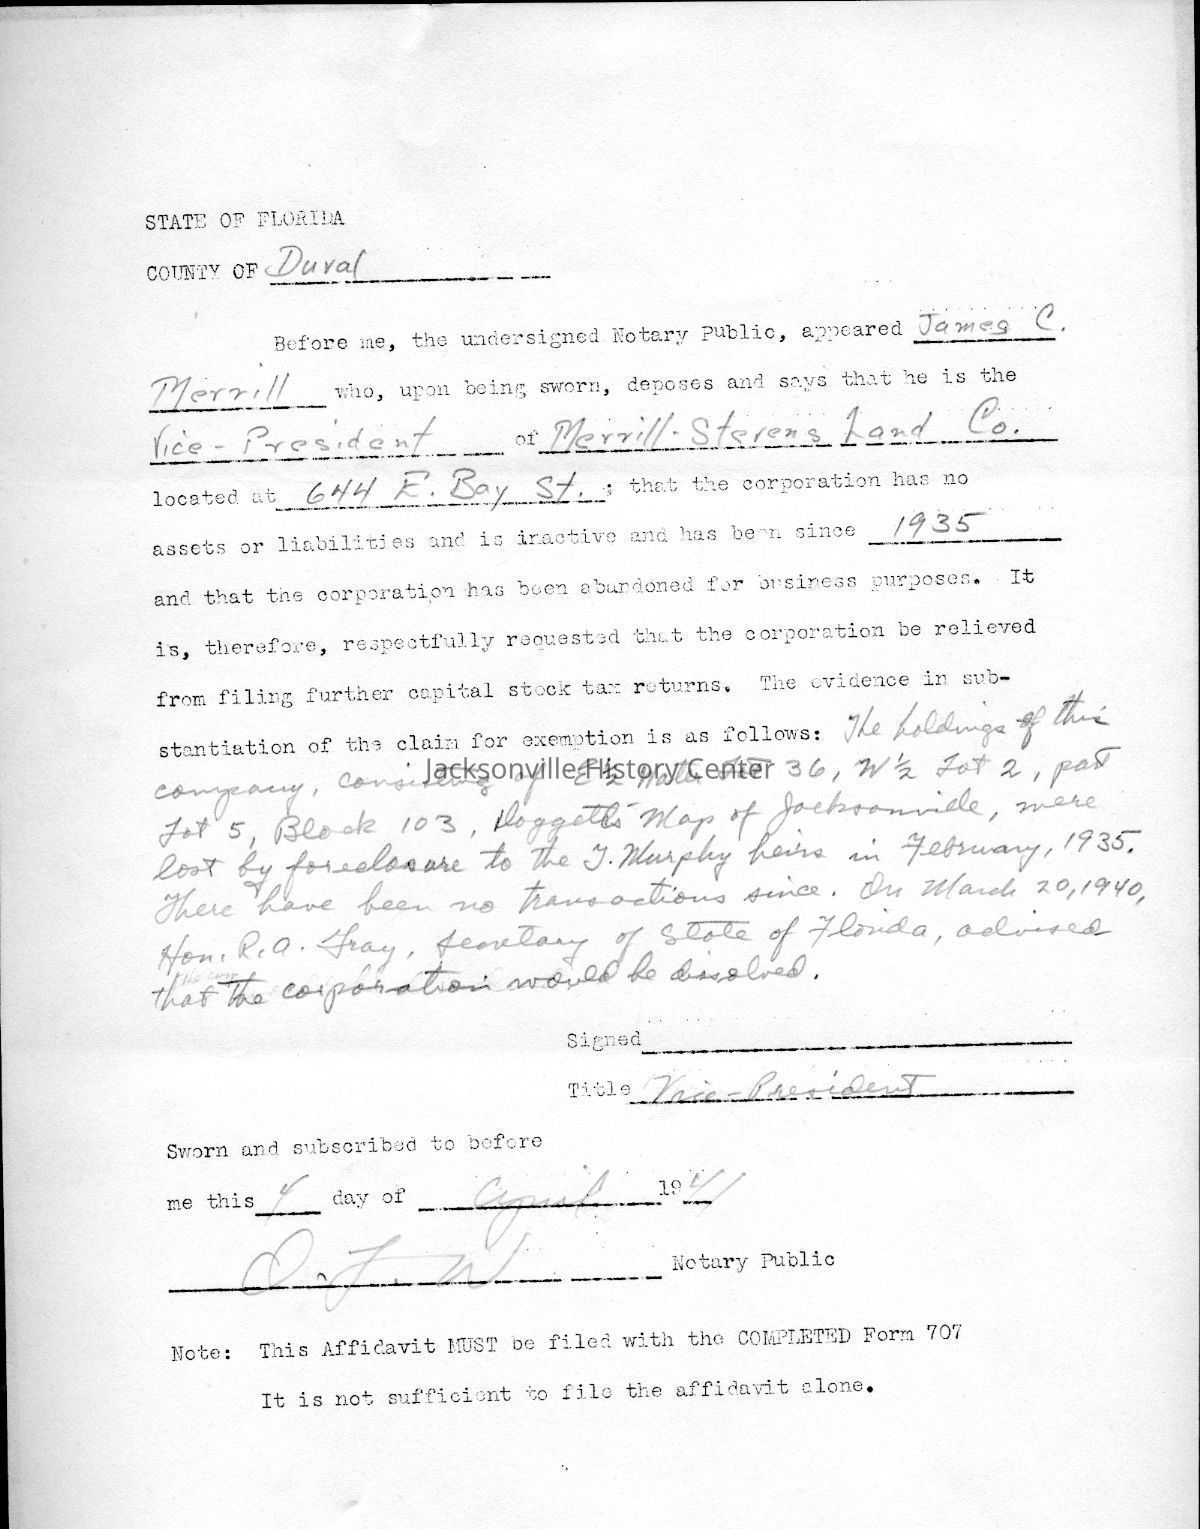 STATE OF FLORIDA
COUNTY OF Duval
Before me, the undersigned Notary Public, appeared James C.
Merrill who, upon being sworn, deposes and says that he is the
Vice-President of Merrill-Stevens Land Co.
located at 644 E. Bay St. ; that the corporation has no
assets or liabilities and is inactive and has been since 1935
and that the corporation has been abandoned for business purposes. It
is, therefore, respectfully requested that the corporation be relieved
from filing further capital stock tax returns. The evidence in sub-
stantiation of the claim for exemption is as follows: The holdings of this
company, consisting of E½ Water Lot 36, W½ Lot 2, part
Jacksonville History Center
Lot 5, Block 103, Doggett's Map of Jacksonville, were
lost by foreclosure to the T. Murphy heirs in February, 1935.
There have been no transactions since. On March 20, 1940,
Hon. R.A. Gray, Secretary of State of Florida, advised
that the corporation would be dissolved.
Signed
Title Vice-President
Sworn and subscribed to before
me this 4 day of April 1941
O. L. W Notary Public
Note: This Affidavit MUST be filed with the COMPLETED Form 707
It is not sufficient to file the affidavit alone.